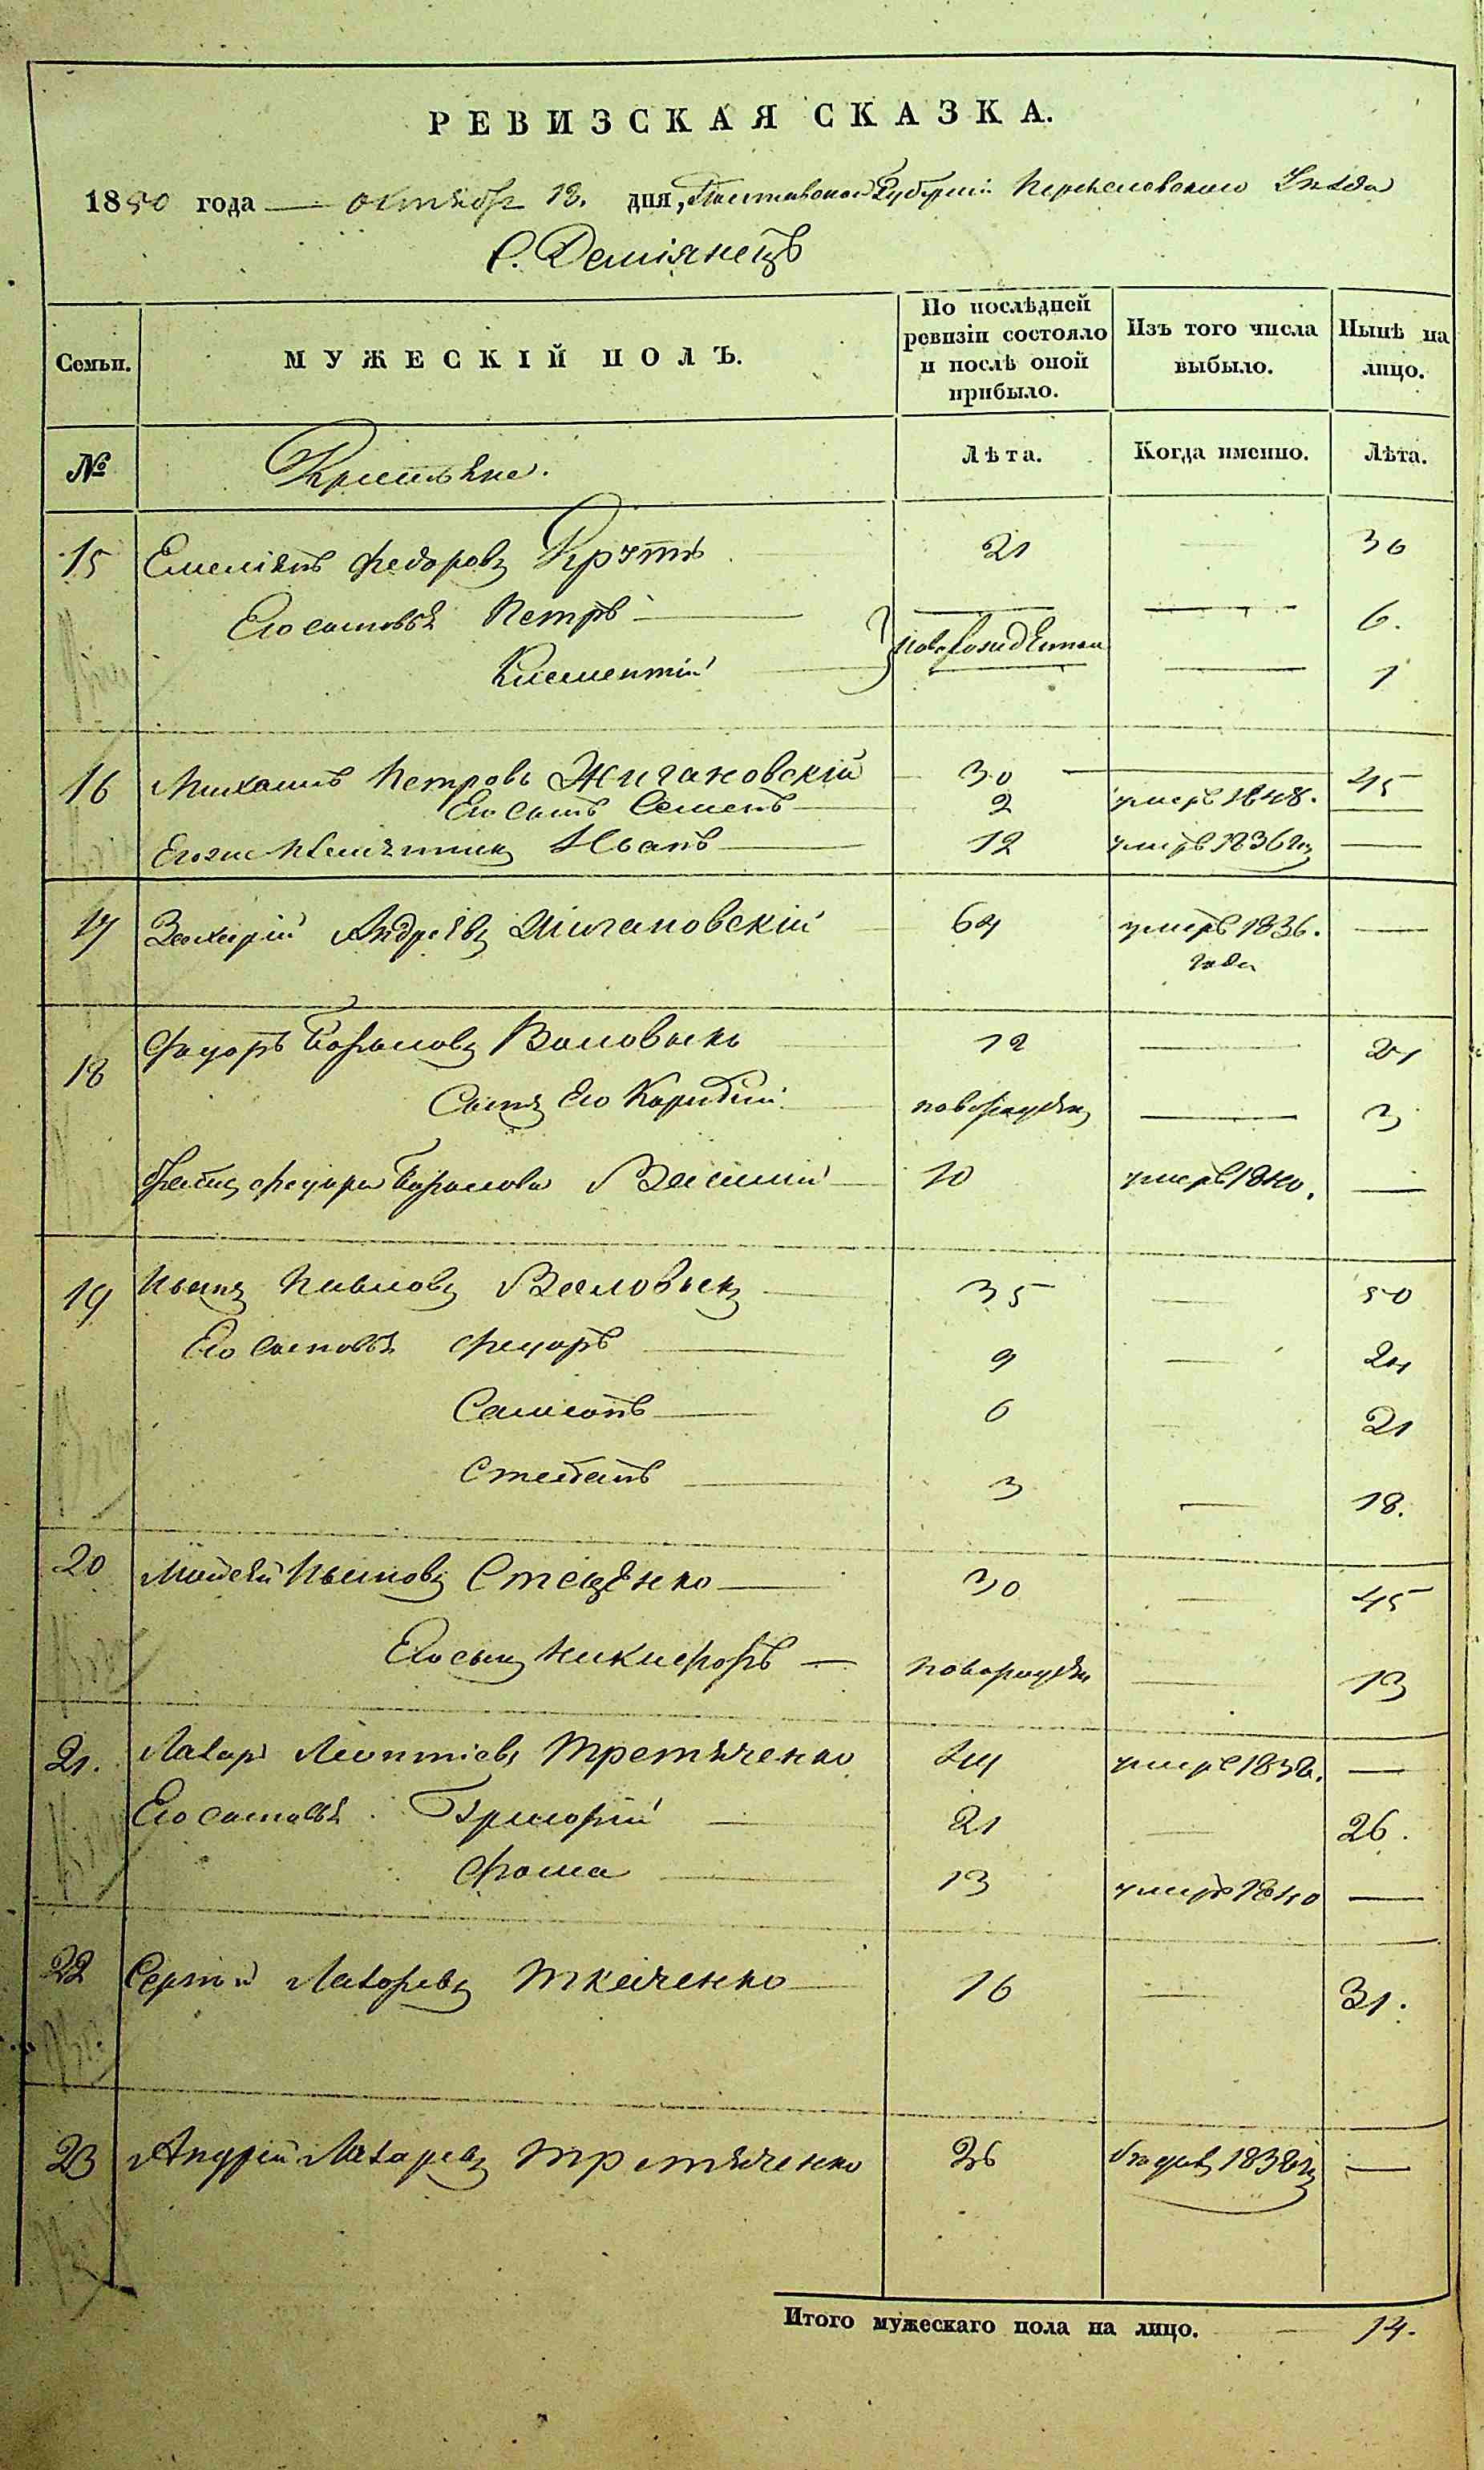 РЕВИЗСКАЯ СКАЗКА.
1850 года — октября 13. дня, Полтавской Губернiи Переяславского Уезда
С. Демiянецъ
Семьи.
МУЖЕСКIЙ ПОЛЪ.
По послѣдней ревизiи состояло и послѣ оной прибыло.
Изъ того числа выбыло.
Нынѣ на лицо.
№
Крестьяне.
Лѣта.
Когда именно.
Лѣта.
15 Емелiянъ Федоровъ Крутъ 21 — 36
Его сыновья Петръ — — 6.
новорожденные
Климентiй — 1
16 Михаилъ Петровъ Жигановскiй 30 — 45
Его сынъ Семенъ — 2 умеръ 1848. —
Его же племянникъ Иванъ — 12 умеръ 1836 го —
17 Захарiй Андреевъ Жигановскiй 64 умеръ 1836. года —
18 Федоръ Воловыкъ 12 — 27
Сынъ Его новорожден — 3
Федора Василiй — 10 умеръ 1840. —
19 Иванъ Павловъ Воловыкъ — 35 — 50
Его сыновья Федоръ — 9 — 24
Самсонъ — 6 21
Степанъ — 3 — 18.
20 Моисей Ивановъ Стеценко — 30 — 45
Его сынъ Никифоръ — новорожден — 13
21. Лазарь Леонтiевъ Третяченко умеръ 1838. —
Его сыновья Григорiй 21 — 26.
Фома — 13 умеръ 1840 —
22 Сергiй Лазоревъ Ткаченко — 16 — 31.
23 Андрей Лазаревъ Третяченко 36 1838 го —
Итого мужескаго пола на лицо. — 14.